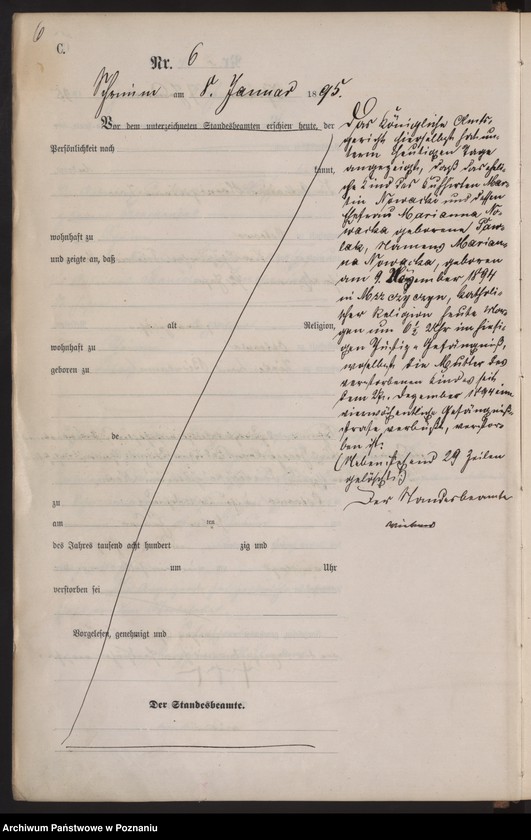 6
C.
Nr. 6
Schrimm am 8. Januar 1895.
Vor dem unterzeichneten Standesbeamten erschien heute, der
Persönlichkeit nach
kannt,
wohnhaft zu
und zeigte an, daß
alt Religion,
wohnhaft zu
geboren zu
de
zu
am ten
des Jahres tausend acht hundert zig und
um Uhr
verstorben sei
Vorgelesen, genehmigt und
Der Standesbeamte.
Das Königliche Amts-
gericht hierselbst hat un-
term heutigen Tage
angezeigt, daß das eheli-
che Kind des Mar-
tin Nowacki und dessen
Ehefrau Marianna No-
wacka geborene Paw-
lak, Namens Marian-
na Nowacka, geboren
am 9. November 1894
in Mszczyczyn, katholi-
scher Religion heute Mor-
gen um 6½ Uhr im hiesi-
gen Gefängniß,
woselbst die Mutter des
verstorbenen Kindes seit
dem 27. Dezember 1894 eine
vierwöchentliche Gefängniß-
strafe verbüßt, verstor-
ben ist.
(Nebenstehend 29 Zeilen
gelöscht.)
Der Standesbeamte
Archiwum Państwowe w Poznaniu